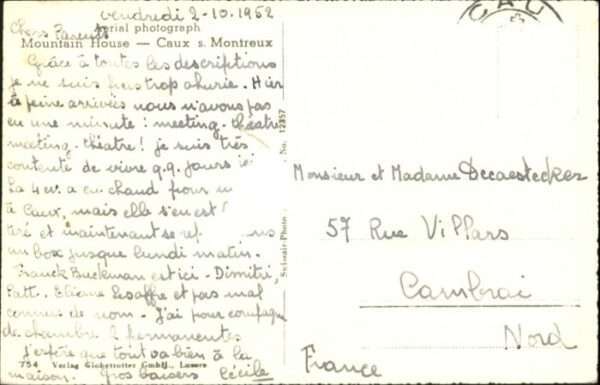 vendredi 2-10.1952
Chers Parents
Aerial photograph
Mountain House — Caux s. Montreux
Grâce à toutes les descriptions
je ne suis pas trop ahurie. Hier
à peine arrivées nous n'avons pas
eu une minute : meeting. théatre
meeting. théatre! je suis très
contente de vivre q.q. jours ici
La 4 cv. a eu chaud pour
à Caux, mais elle s'en est
tiré et maintenant se
un box jusque lundi matin.
Franck Buckman est ici - Dimitri,
Patt. Eliane Lesaffre et pas mal
connus de nom. J'ai pour compagne
de chambre 2 permanentes
J'espère que tout va bien à la
754 Verlag Globetrotter GmbH., Luzern
maison. Gros baisers Cécile
Swissair-Photo No. 12357
CAUX
Monsieur et Madame Decaestecker
57 Rue Villars
Cambrai
Nord
France